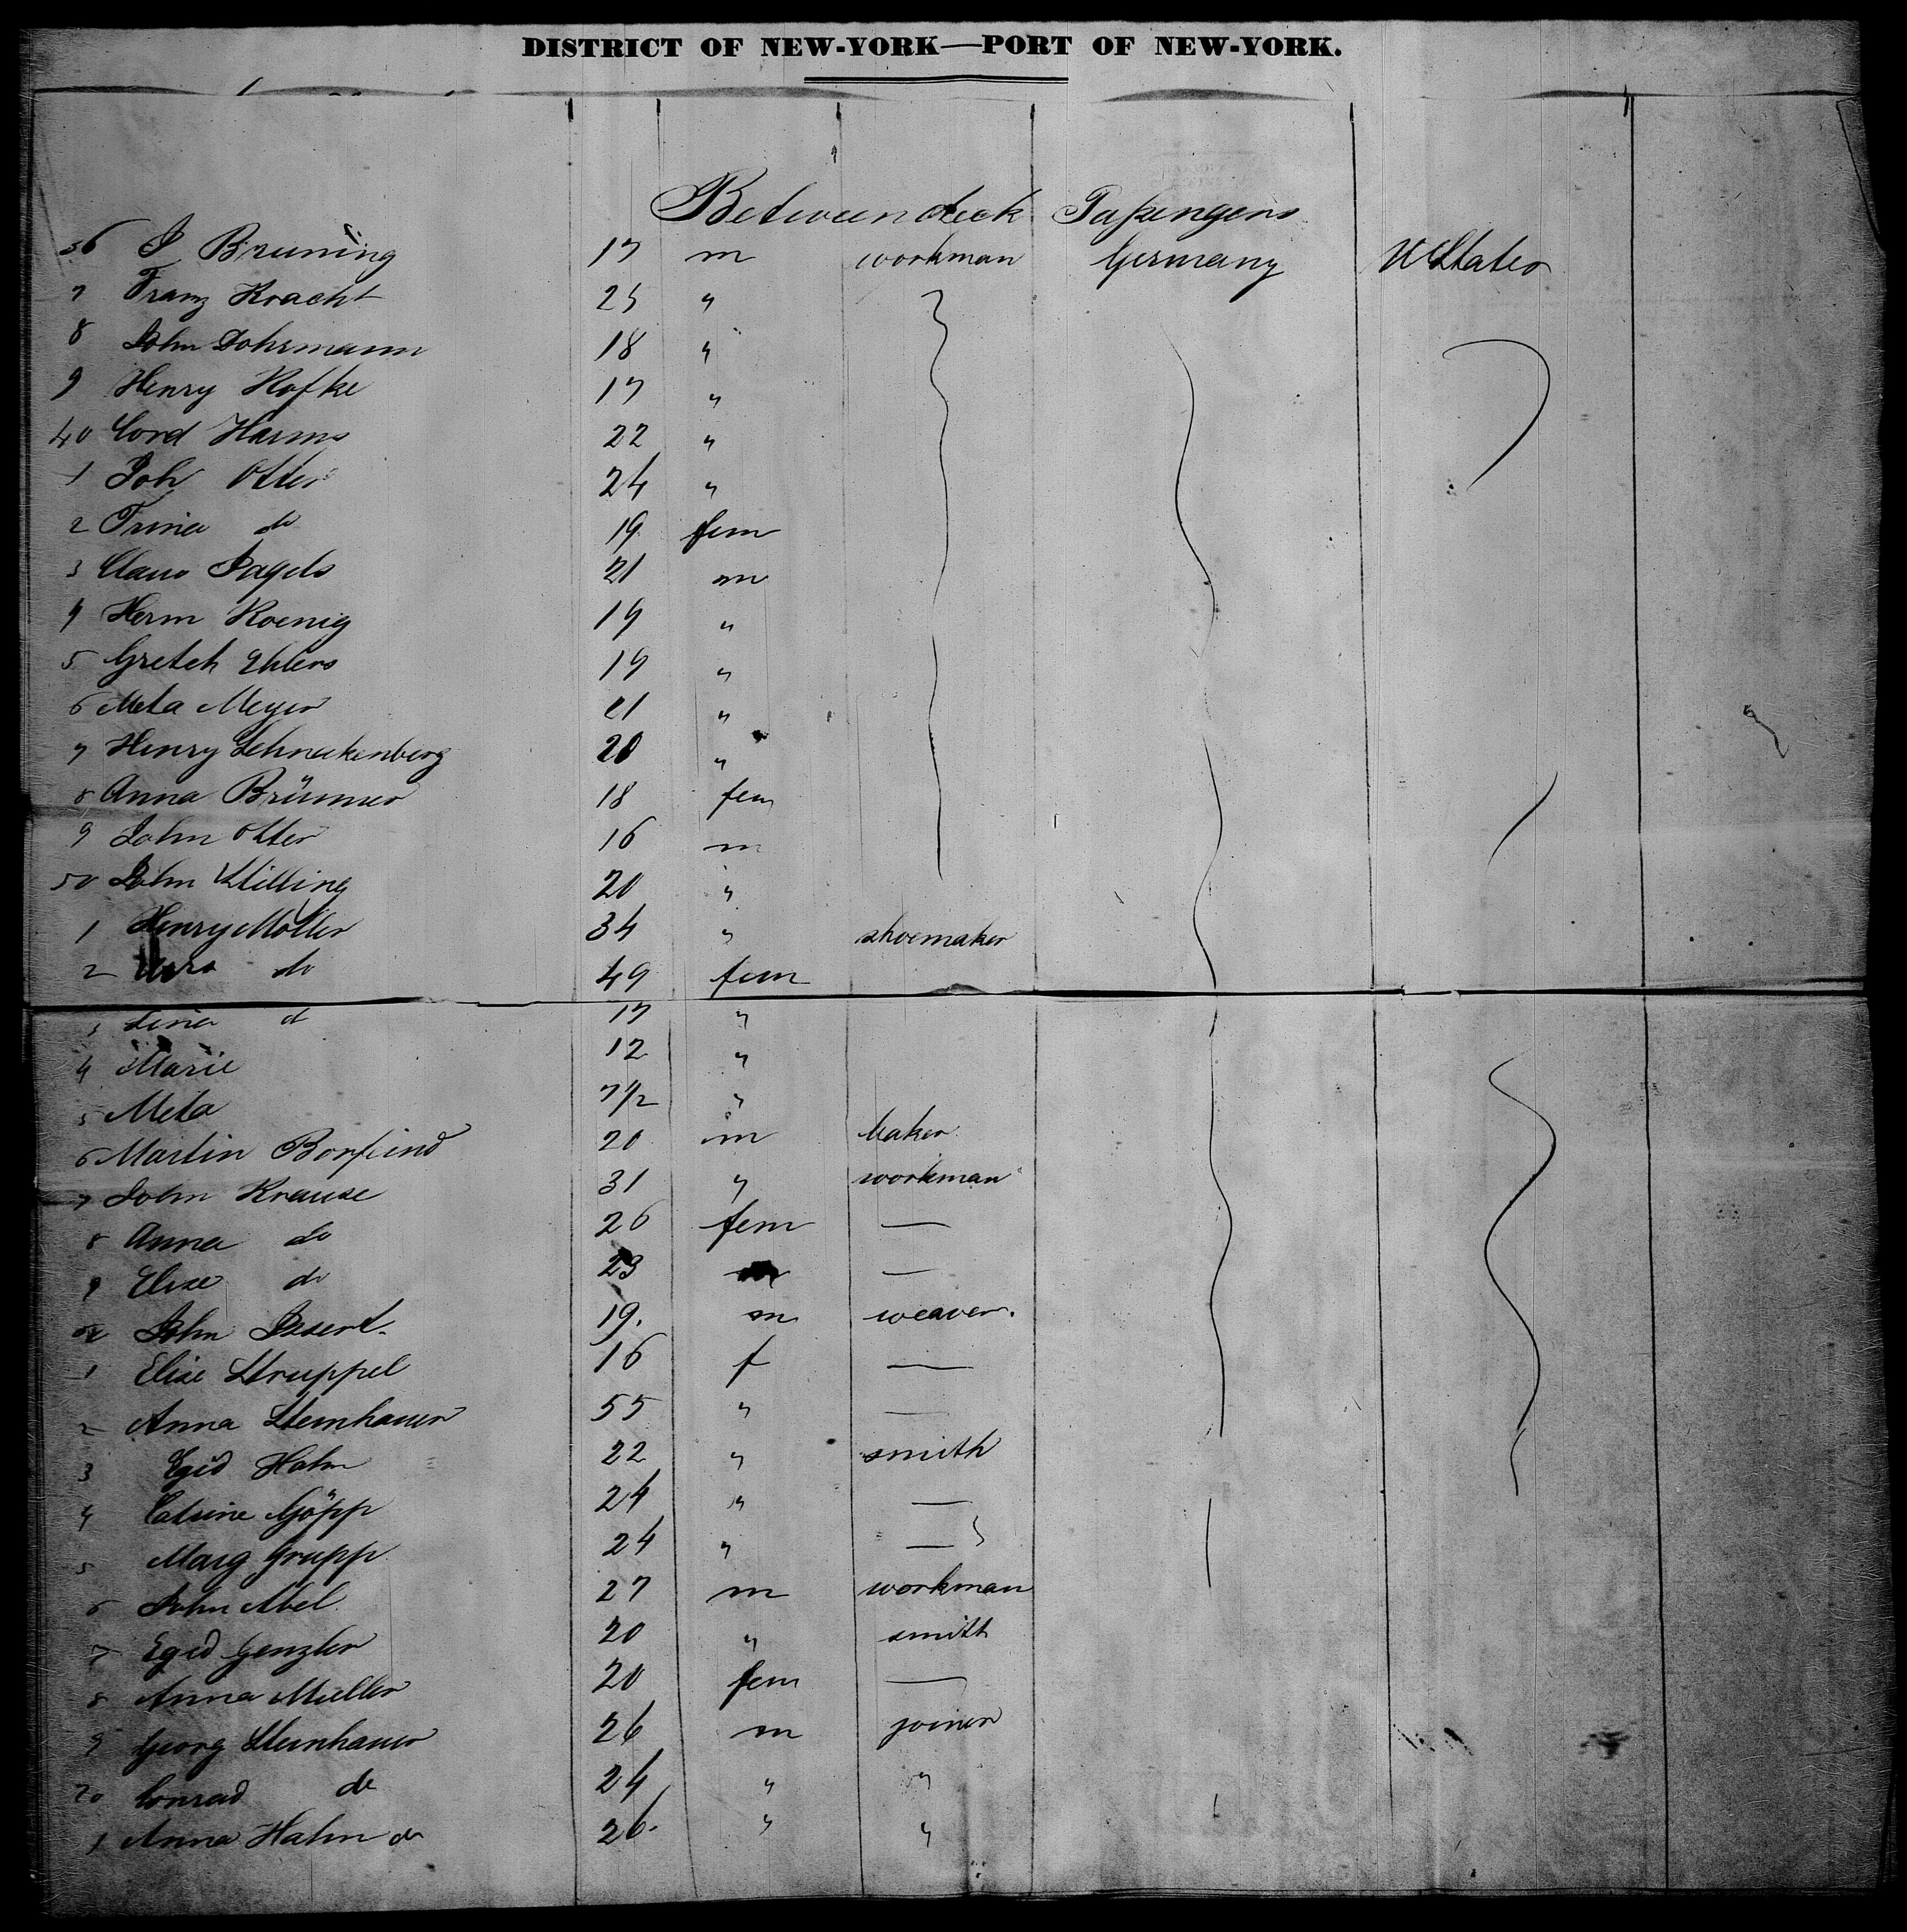 DISTRICT OF NEW-YORK—PORT OF NEW-YORK.
Between deck Passengers
36 J Bruning 17 m workman Germany U States
7 Franz Kracht 25 "
8 John Dohrmann 18 "
9 Henry Kofke 17 "
40 Cord Harms 22 "
1 Joh Otter 24 "
2 Trina do 19 fem
3 Claus Pagels 21 m
4 Herm Koenig 19 "
5 Gretch Ehlers 19 "
6 Meta Meyer 21 "
7 Henry Schnackenberg 20 "
8 Anna Brümmer 18 fem
9 John Otter 16 m
50 John Stilling 20 "
1 Henry Möller 34 " shoemaker
2 do 49 fem
3 Lina d 17 "
4 Marie 12 "
5 Meta 7 1/2 "
6 Martin Borfeind 20 m baker
7 John Krause 31 " workman
8 Anna do 26 fem —
9 Elise do 23 —
John 19. m weaver.
1 Elise Struppel 16 f —
2 Anna Steinhauer 55 " —
3 Egid Hahn 22 " smith
4 Catrine Göpp 24 " —
5 Marg Grupp 24 " —
6 John Abel 27 m workman
7 Egid Genzler 20 " smith
8 Anna Muller 20 fem —
9 Georg Steinhauer 26 m joiner
70 Conrad do 24 " "
1 Anna Hahn do 26. " "